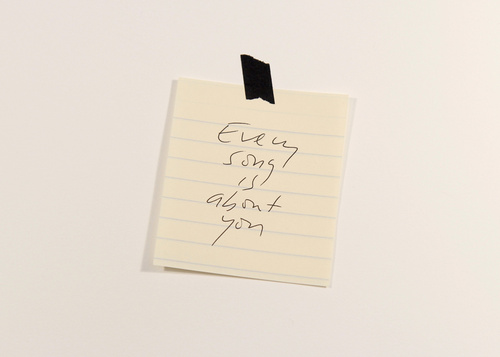 Every
song
is
about
you